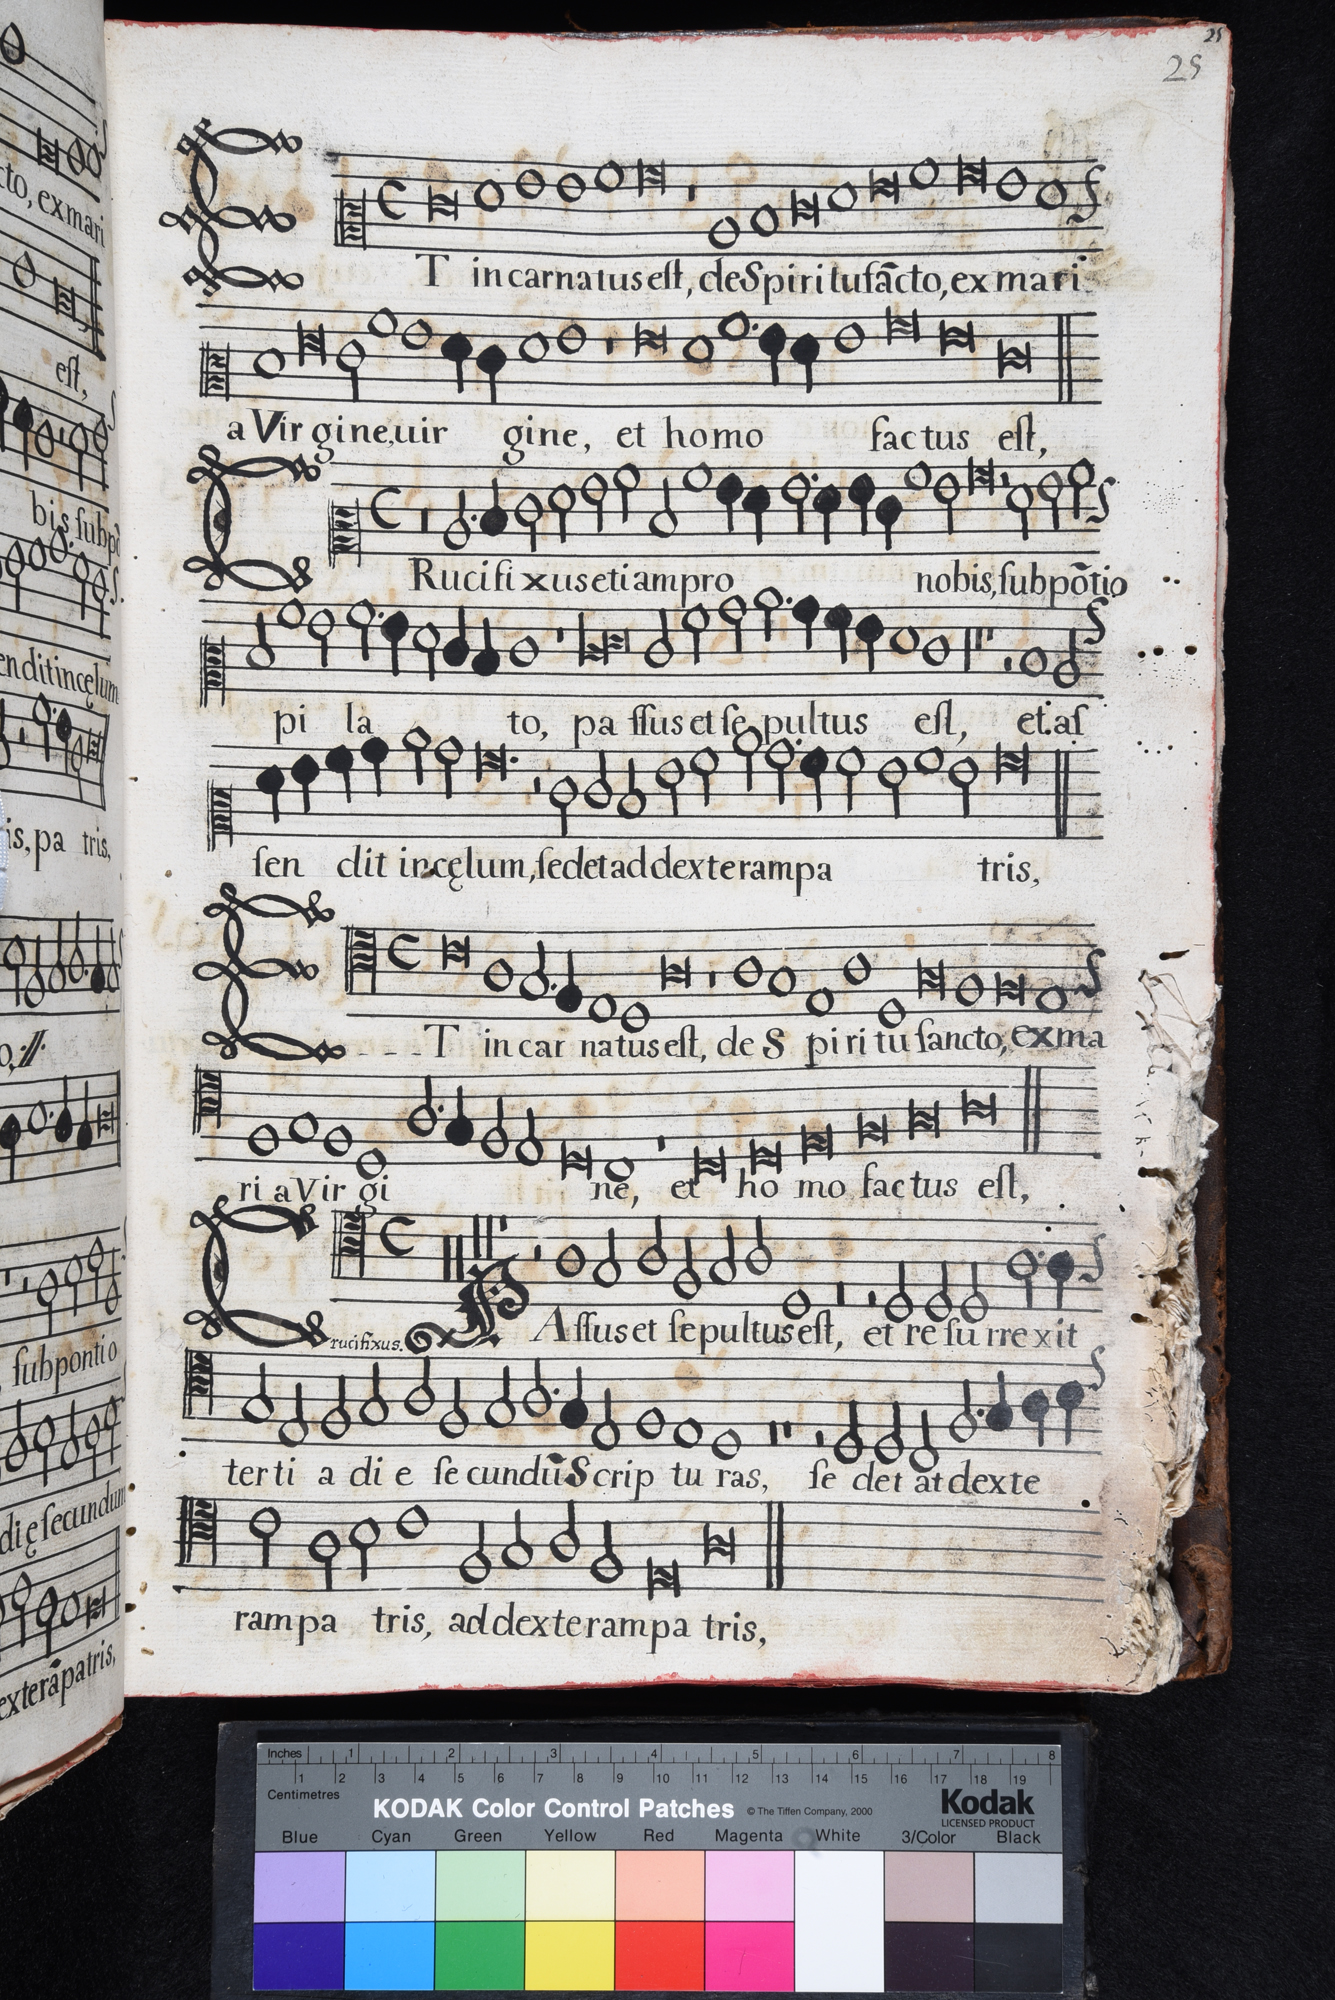 25
25
cto, ex mari
est,
bis, subpō
endit incęlum
is, pa tris,
subpontio
dię secundum
exterāpatris,
ET incarnatus est, de Spiritu sācto, ex mari
a Virgine, uir gine, et homo factus est,
CRucifixus etiam pro nobis, sub pōtio
pi la to, passus et sepultus est, et as
sen dit in cęlum, sedet ad dexteram pa tris,
E---T incarnatus est, de Spiritu sancto, ex ma
ri a Virgi ne, et homo factus est,
Crucifixus. PAssus et sepultus est, et resurrexit
tertia die secundū Scripturas, sedet at dexte
ram patris, ad dexteram patris,
Inches 1 2 3 4 5 6 7 8
Centimetres 1 2 3 4 5 6 7 8 9 10 11 12 13 14 15 16 17 18 19
KODAK Color Control Patches © The Tiffen Company, 2000 Kodak
LICENSED PRODUCT
Blue Cyan Green Yellow Red Magenta White 3/Color Black